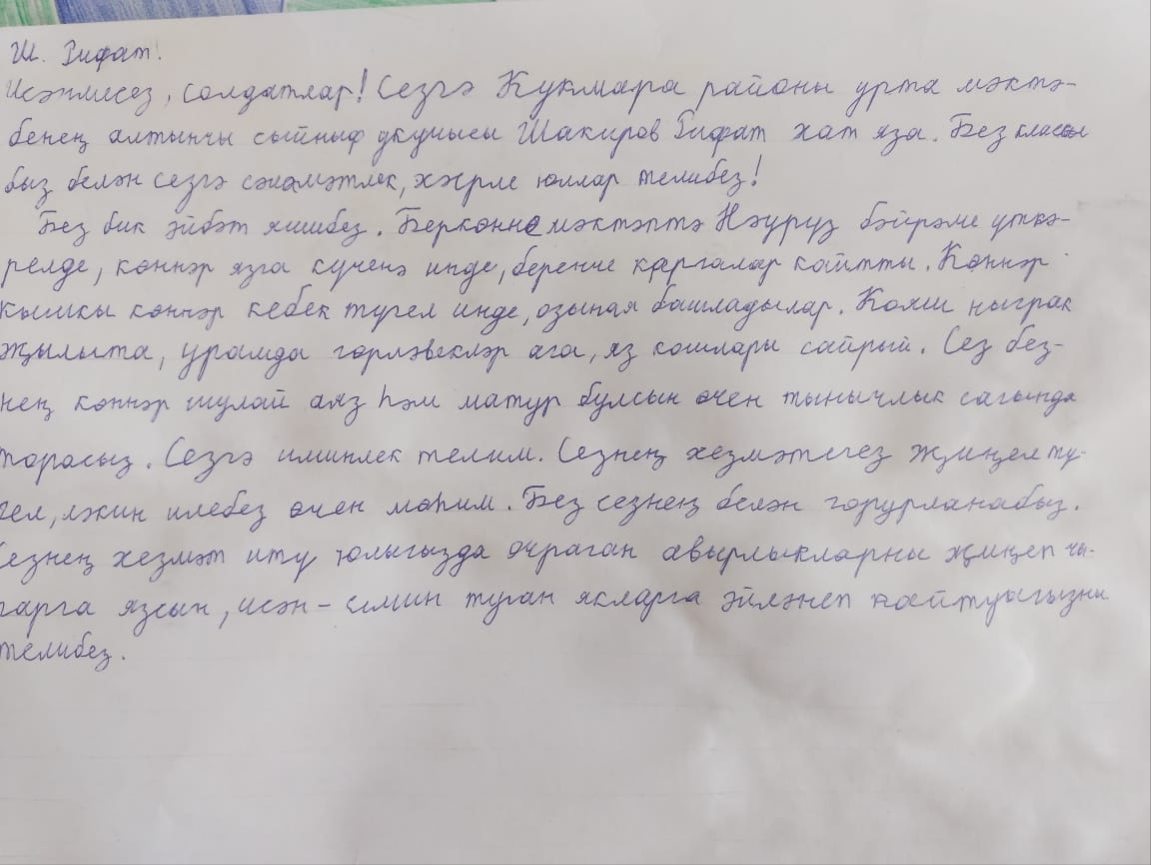 Ш. Рифат!
Исәнмесез, солдатлар! Сезгә Кукмара районы урта мәктә-
бенең алтынчы сыйныф укучысы Шакиров Рифат хат яза. Без классы
быз белән сезгә сәламәтлек, хәерле юллар телибез!
Без бик әйбәт яшибез. Беркөнне мәктәптә Нәүрүз бәйрәме үткә-
релде, көннәр язга күченә инде, беренче каргалар кайтты. Көннәр
кышкы көннәр кебек түгел инде, озыная башладылар. Кояш ныграк
җылыта, урамда гөрләвекләр ага, яз кошлары сайрый. Сез без-
нең көннәр шулай аяз һәм матур булсын өчен тынычлык сагында
торасыз. Сезгә иминлек телим. Сезнең хезмәтегез җиңел тү-
гел, ләкин илебез өчен мөһим. Без сезнең белән горурланабыз.
Сезнең хезмәт итү юлыгызда очраган авырлыкларны җиңеп чы-
гарга язсын, исән-имин туган якларга әйләнеп кайтуыгызны
телибез.